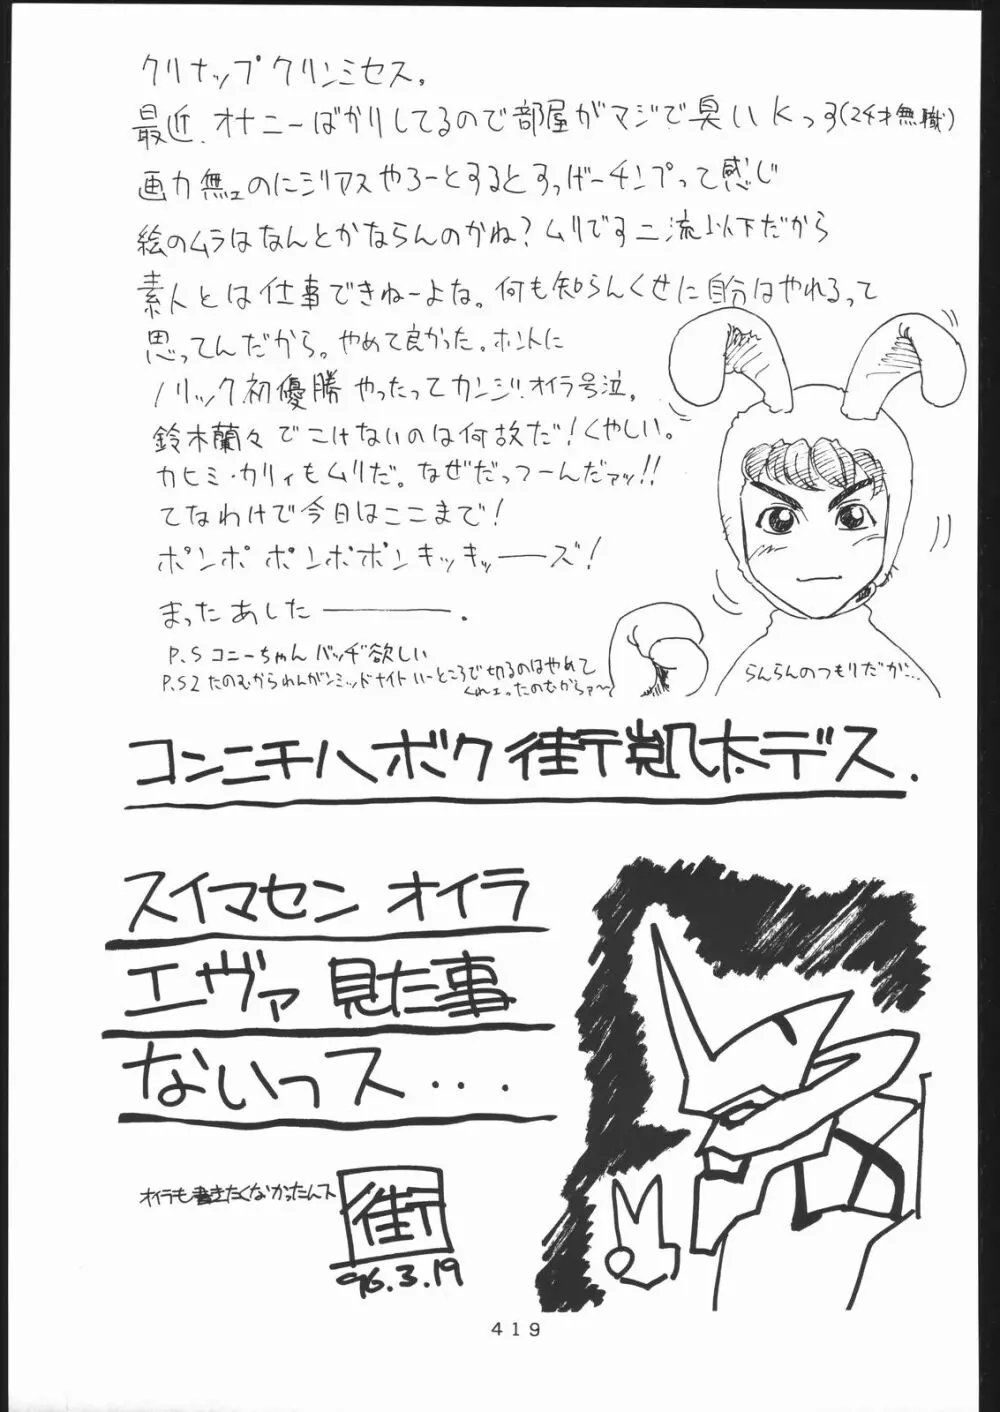 クリナップクリンミセス。
最近、オナニーばかりしてるので部屋がマジで臭いKっす(24才無職)
画力無ェのにシリアスやろーとするとすっげーチンプって感じ
絵のムラはなんとかならんのかね?ムリです二流以下だから
素人とは仕事できねーよな。何も知らんくせに自分はやれるって
思ってんだから。やめて良かった。ホントに
ノリック初優勝やったってカンジ。オイラ号泣。
鈴木蘭々でこけないのは何故だ!くやしい。
カヒミ・カリィもムリだ。なぜだっつーんだァッ!!
てなわけで今日はここまで!
ポンポ ポンポポンキッキッーーズ!
まったあしたーーー。
P.S コニーちゃんバッヂ欲しい
P.S2 たのむからわんがんミッドナイト いーところで切るのはやめて
くれェったのむからァ〜
らんらんのつもりだが…
コンニチハボク街凱太デス.
スイマセン オイラ
エヴァ 見た事
ないっス...
オイラも書きたくなかったんス
街
96.3.19
419